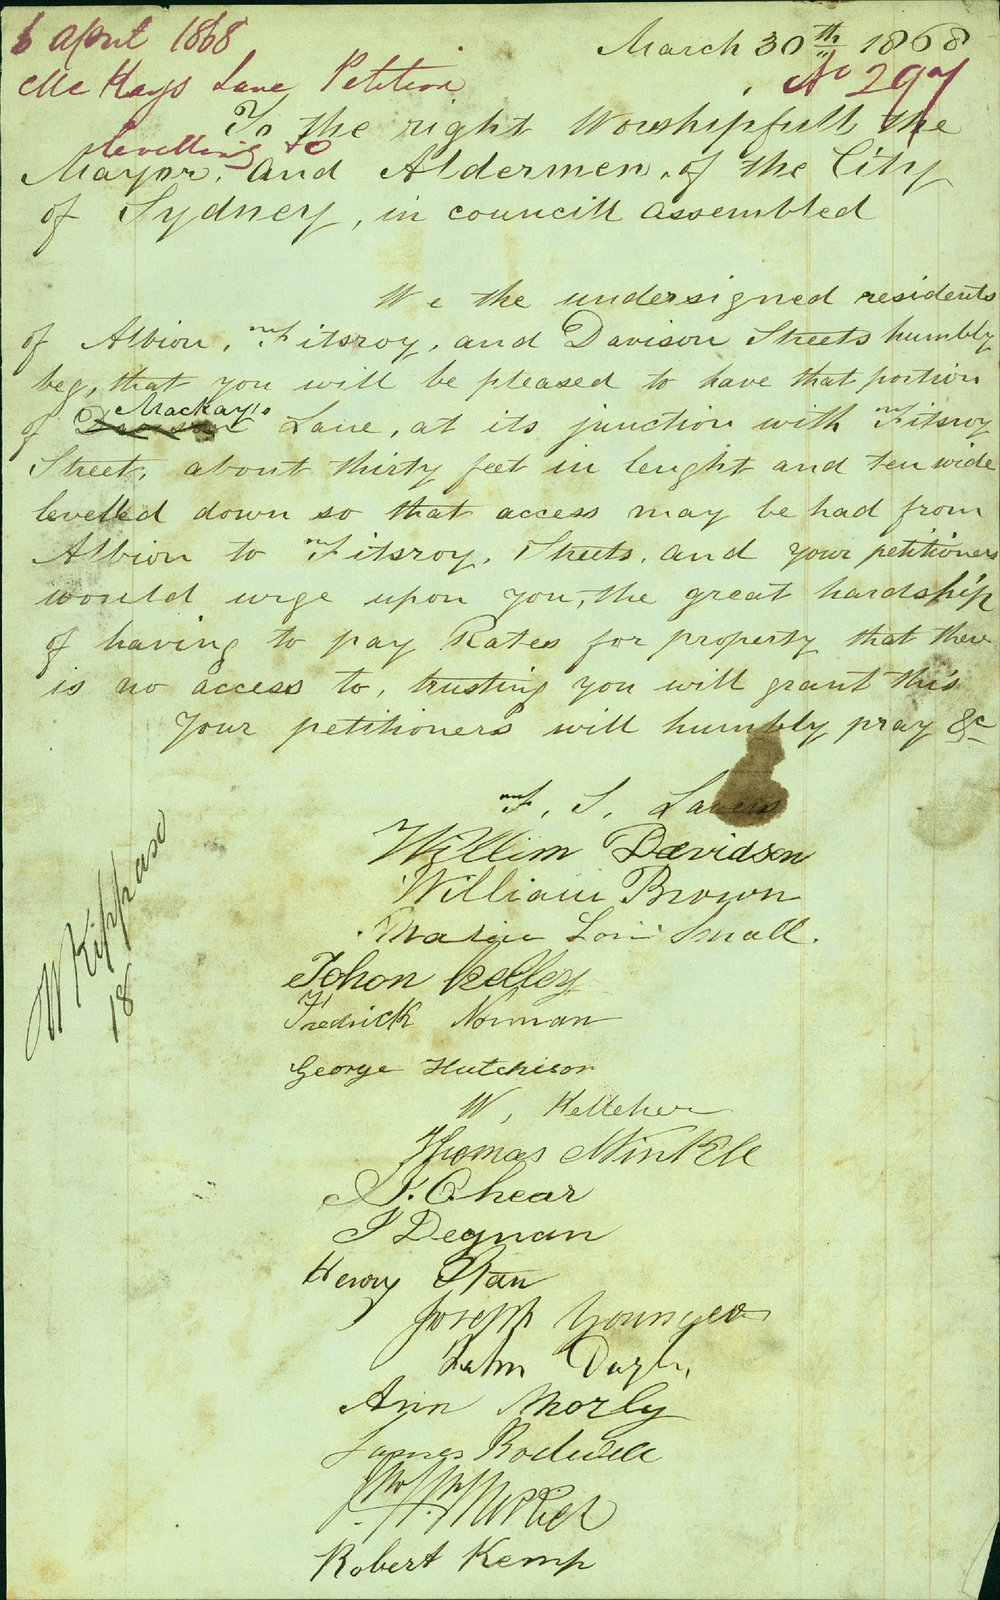 6 April 1868
March 30th 1868
McKays Lane Petition
No 297
levelling to
To the right Worshipfull the
Mayor, and Aldermen, of the City
of Sydney, in councill assembled
We the undersigned residents
of Albion, Fitsroy, and Davison Streets humbly
beg, that you will be pleased to have that portion
of Mackay's Lane, at its junction with Fitsroy
Street, about thirty feet in lenght and ten wide
levelled down so that access may be had from
Albion to Fitsroy, Streets, and your petitioners
would urge upon you, the great hardship
of having to pay Rates for property that there
is no access to, trusting you will grant this
Your petitioners will humbly pray &c
F. S. Lavers
Willim Davidson
William Brown
Small.
Johon Kelley
Fredrick Norman
George Hutchison
W, Kelleher
Thomas
Degnan
Henry
Joseph
John
Ann Morly
James Rodwell
Robert Kemp
W
18